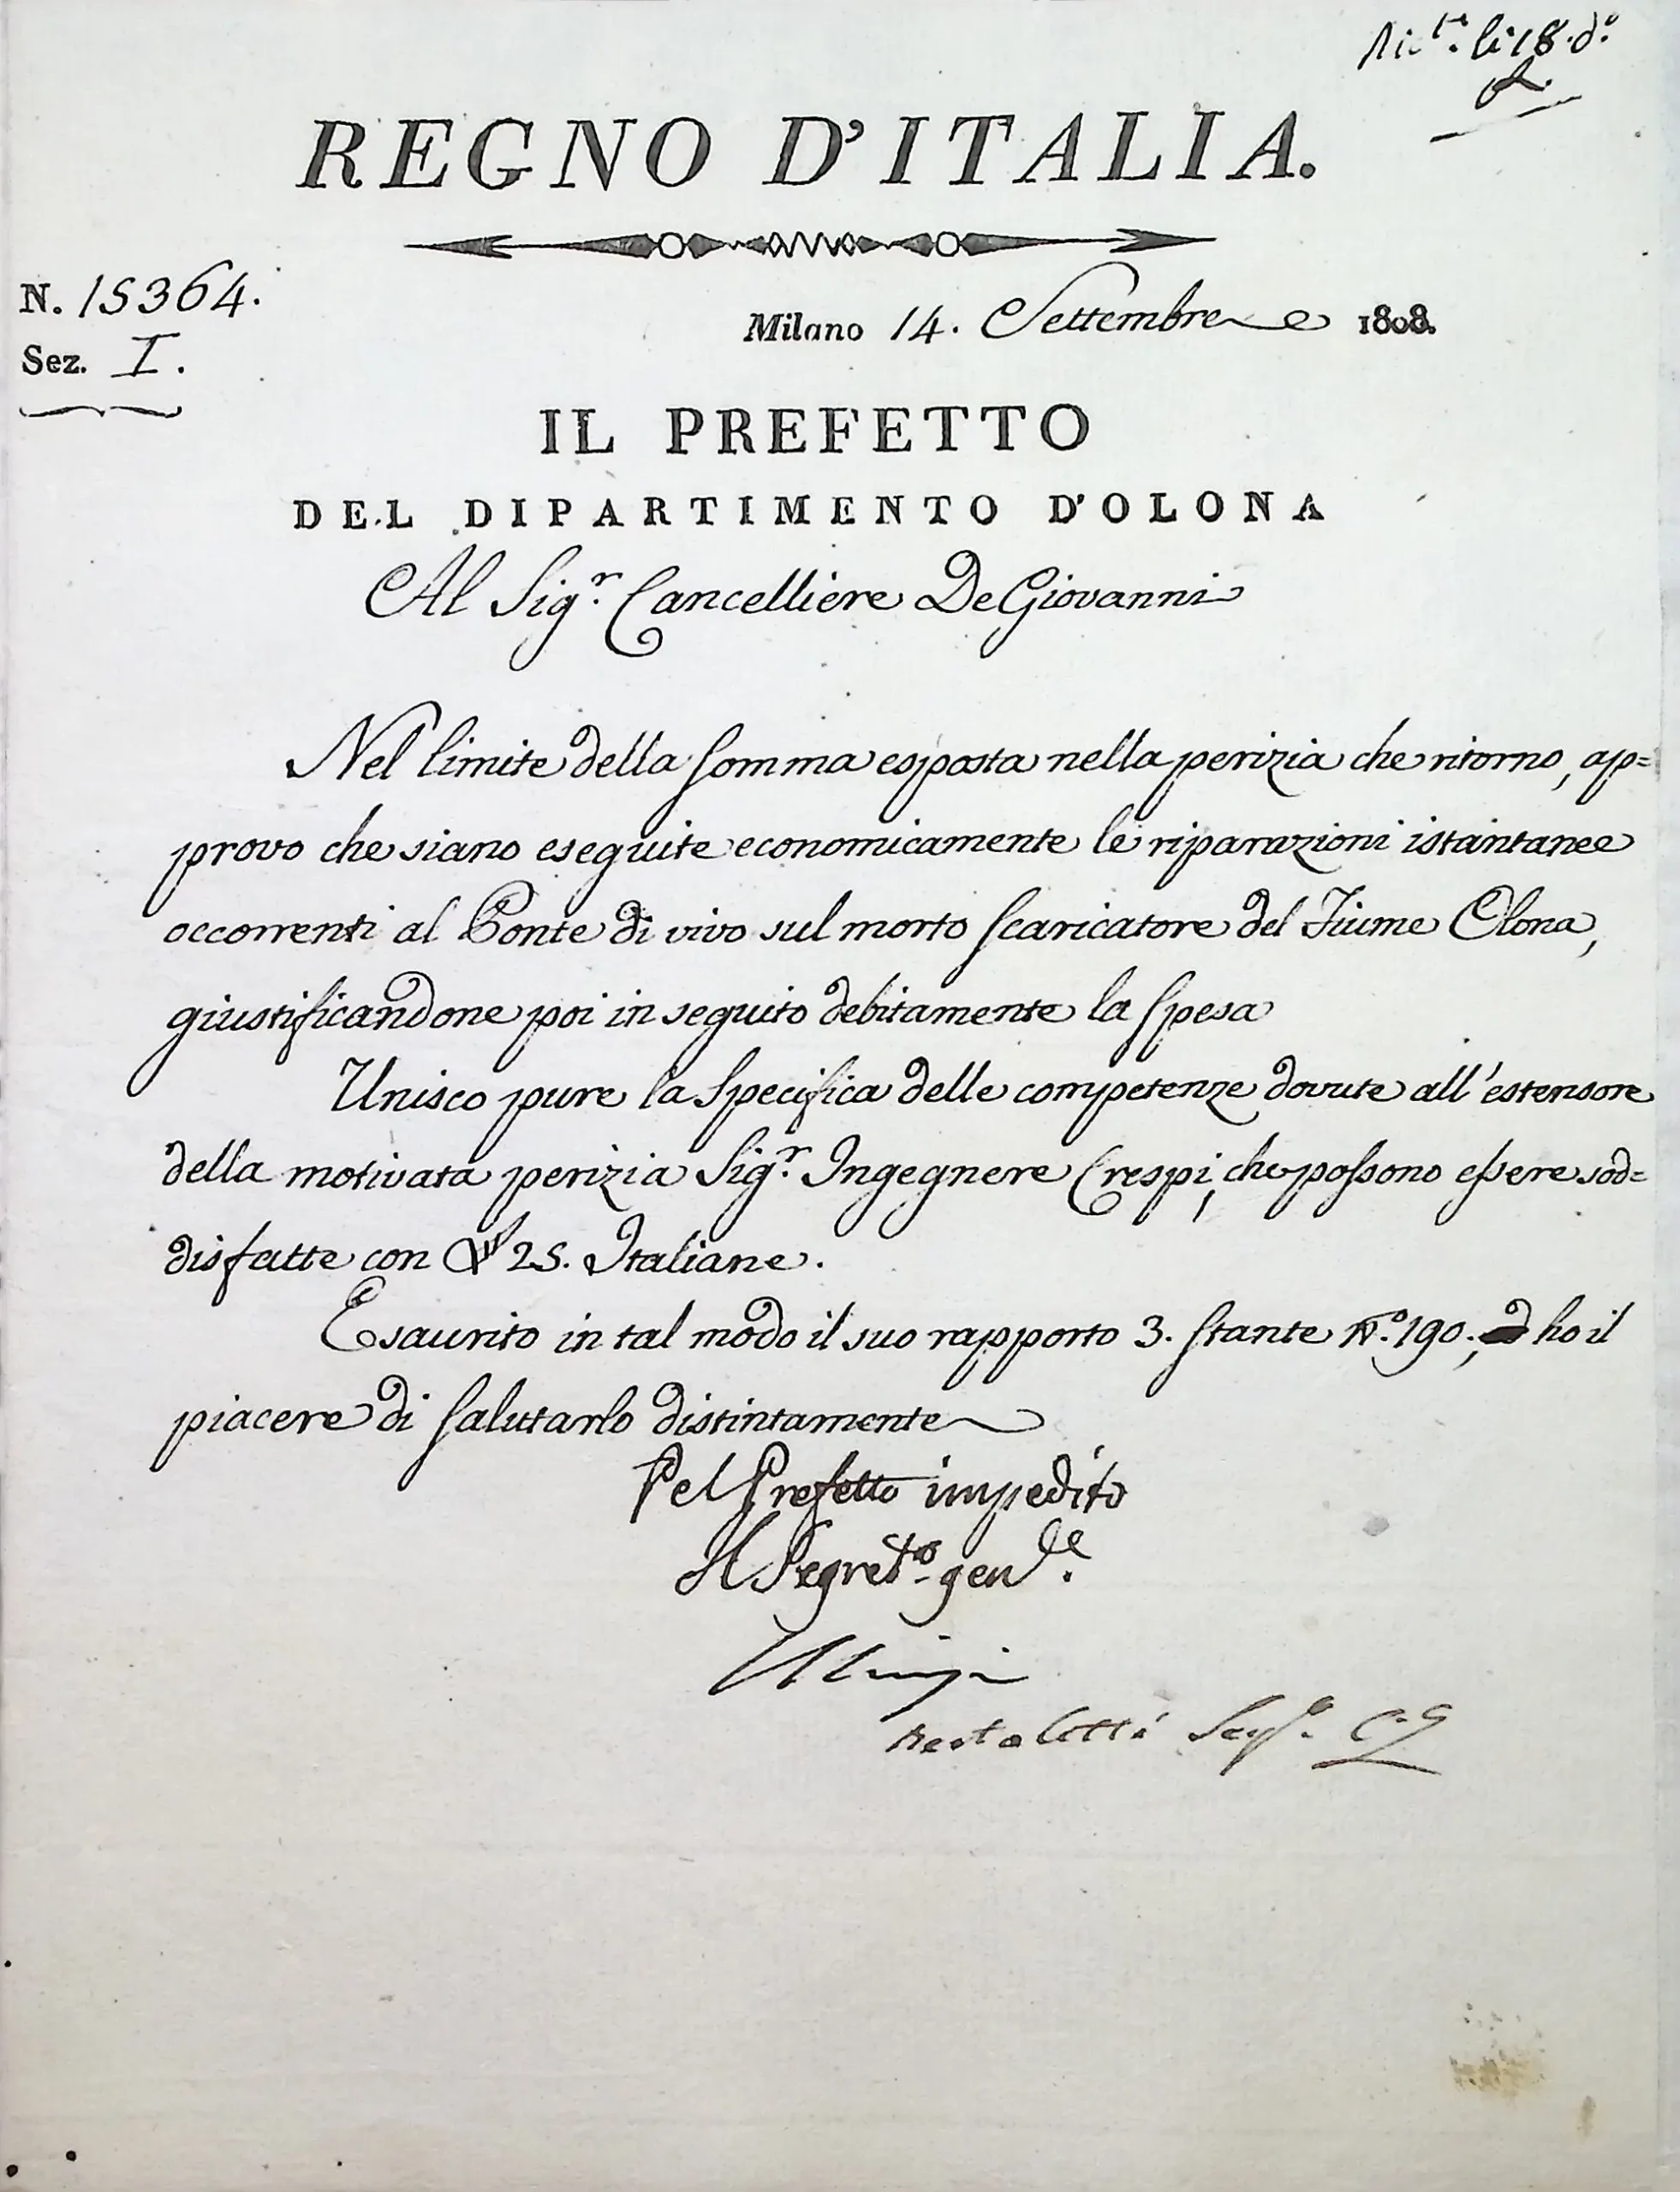 li 18. d.º
REGNO D'ITALIA.
N. 15364.
Milano 14. Settembre 1808.
Sez. I.
IL PREFETTO
DEL DIPARTIMENTO D'OLONA
Al Sig.r Cancelliere DeGiovanni
Nel limite della somma esposta nella perizia che ritorno, ap=
provo che siano eseguite economicamente le riparazioni istantanee
occorrenti al Ponte di vivo sul morto scaricatore del Fiume Olona,
giustificandone poi in seguito debitamente la spesa
Unisco pure la specifica delle competenze dovute all'estensore
della motivata perizia Sig.r Ingegnere Crespi, che possono essere sod=
disfatte con 25. Italiane.
Esaurito in tal modo il suo rapporto 3. stante N.º 190., ho il
piacere di salutarlo distintamente
Pel Prefetto impedito
Il Segret.º gen.le